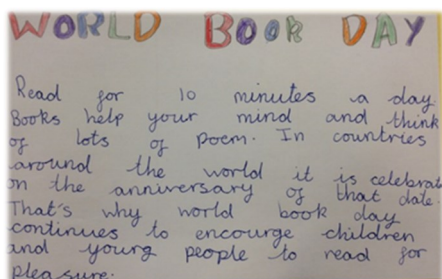 WORLD BOOK DAY
Read for 10 minutes a day
Books help your mind and think
of lots of poem. In countries
around the world it is celebrat
on the anniversary of that date.
That's why world book day
continues to encourge children
and young people to read for
pleasure.